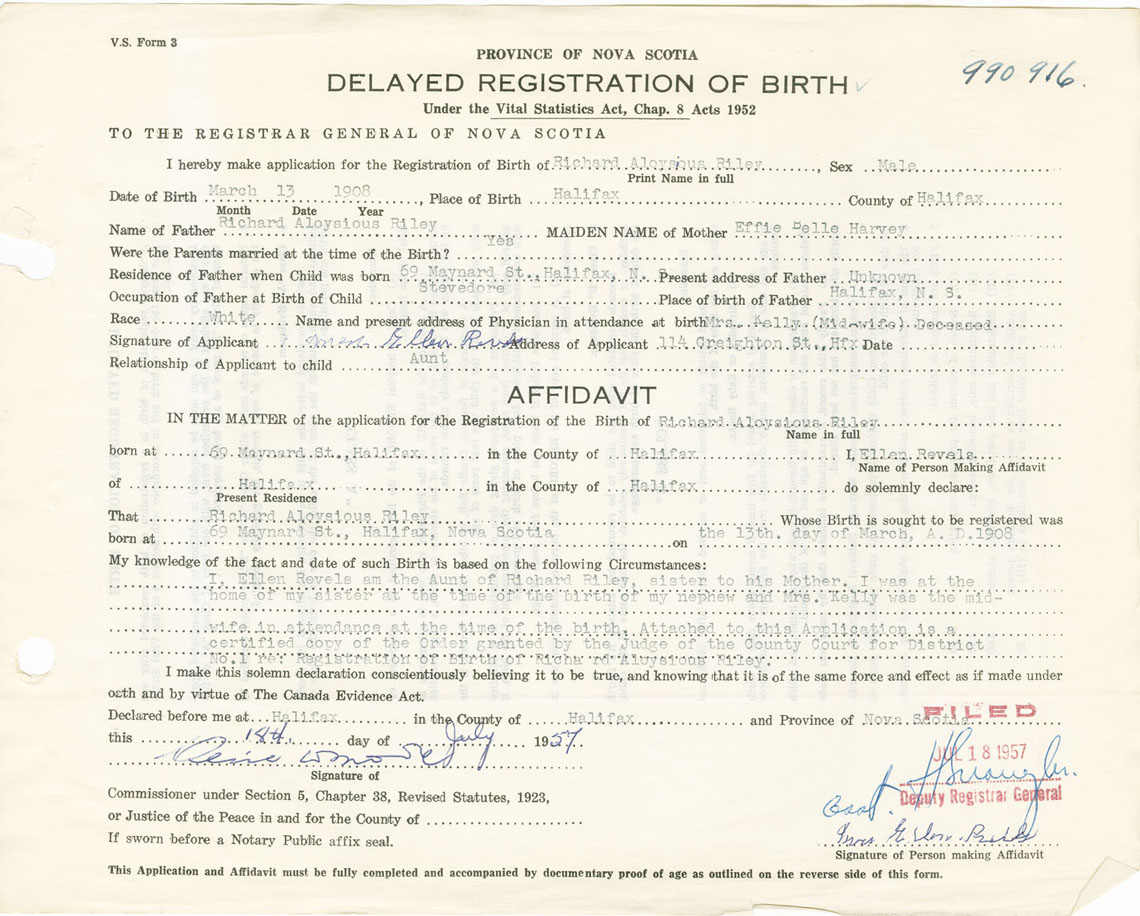 V.S. Form 3
990 916.
PROVINCE OF NOVA SCOTIA
DELAYED REGISTRATION OF BIRTH
Under the Vital Statistics Act, Chap. 8 Acts 1952
TO THE REGISTRAR GENERAL OF NOVA SCOTIA
I hereby make application for the Registration of Birth of Richard Aloysious Riley, Sex Male
Print Name in full
Date of Birth March 13 1908, Place of Birth Halifax County of Halifax
Month Date Year
Name of Father Richard Aloysious Riley MAIDEN NAME of Mother Effie Belle Harvey
Were the Parents married at the time of the Birth? Yes
Residence of Father when Child was born 69 Maynard St., Halifax, N. S. Present address of Father Unknown
Occupation of Father at Birth of Child Stevedore Place of birth of Father Halifax, N. S.
Race White Name and present address of Physician in attendance at birth Mrs. Kelly (Mid-wife) Deceased
Signature of Applicant Ellen Address of Applicant 114 Creighton St., Hfx Date
Relationship of Applicant to child Aunt
AFFIDAVIT
IN THE MATTER of the application for the Registration of the Birth of Richard Aloysious Riley
Name in full
born at 69 Maynard St., Halifax in the County of Halifax I, Ellen Revels
Name of Person Making Affidavit
of Halifax in the County of Halifax do solemnly declare:
Present Residence
That Richard Aloysious Riley Whose Birth is sought to be registered was
born at 69 Maynard St., Halifax, Nova Scotia on the 13th. day of March, A. D.1908
My knowledge of the fact and date of such Birth is based on the following Circumstances:
I, Ellen Revels am the Aunt of Richard Riley, sister to his Mother. I was at the
home of my sister at the time of the birth of my nephew and Mrs. Kelly was the mid-
wife in attendance at the time of the birth. Attached to this Application is a
certified copy of the Order granted by the Judge of the County Court for District
No.1 re: Registration of Birth of Richa rd Aloysious Riley.
I make this solemn declaration conscientiously believing it to be true, and knowing that it is of the same force and effect as if made under
oath and by virtue of The Canada Evidence Act.
Declared before me at Halifax in the County of Halifax and Province of Nova Scotia
FILED
this 18th day of July 1957
JUL 18 1957
Signature of
Deputy Registrar General
Commissioner under Section 5, Chapter 38, Revised Statutes, 1923,
or Justice of the Peace in and for the County of
If sworn before a Notary Public affix seal.
Signature of Person making Affidavit
This Application and Affidavit must be fully completed and accompanied by documentary proof of age as outlined on the reverse side of this form.